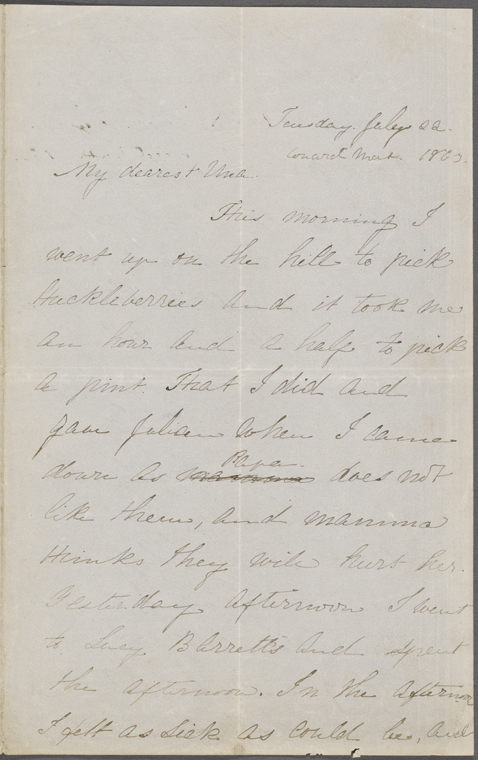 Tuesday. July 22.
Concord Mat. 186
My dearest Una.
This morning I
went up on the hill to pick
huckleberries and it took me
an hour and a half to pick
a pint. That I did and
gave Julian when I came
Papa.
down as mamma does not
like them, and mamma
thinks they will hurt her.
Yesterday afternoon I went
to Lucy Barretts and spent
the afternoon. In the afternoon
I felt as sick as could be, and